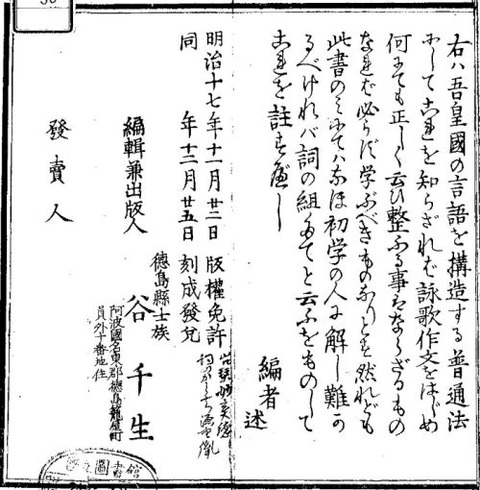 右ハ吾皇國の言語を構造する普通法
にしてこれを知らざれば詠歌作文をはじめ
何にても正しく云ひ整ふる事はならざるもの
なれば必らず学ぶべきものなりとす然れども
此書のミにてハなほ初学の人に解し難か
るべけれバ詞の組たてと云ふをものして
これを註すべし
編者述
明治十七年十一月廿二日 版權免許
同 年十二月廿五日 刻成發兌
編輯兼出版人
德島縣士族
谷千生
阿波國名東郡德島籠屋町
員外十番地住
發賣人